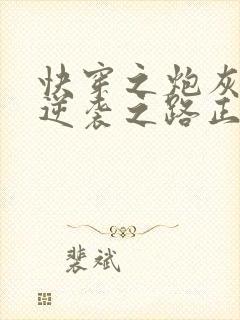 快穿之炮灰
逆袭之路正
裴斌